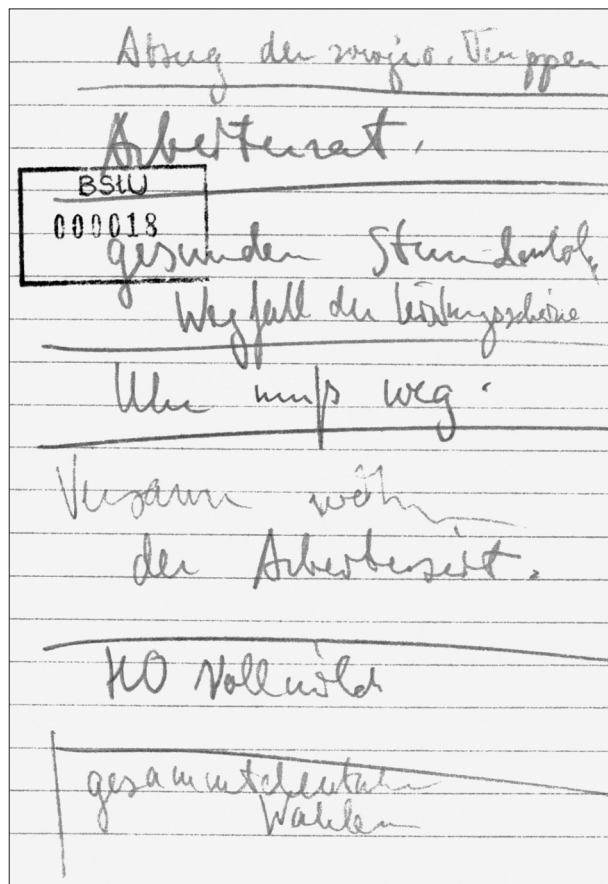 Abzug der sowjis. Truppen
Arbeiterrat.
BStU
000018
gesunden Stundenlohn
Wegfall der Leistungsscheine
Uhr muß weg.
Versamm währ
der Arbeitszeit.
HO Vollmilch
gesammtdeutsche
Wahlen